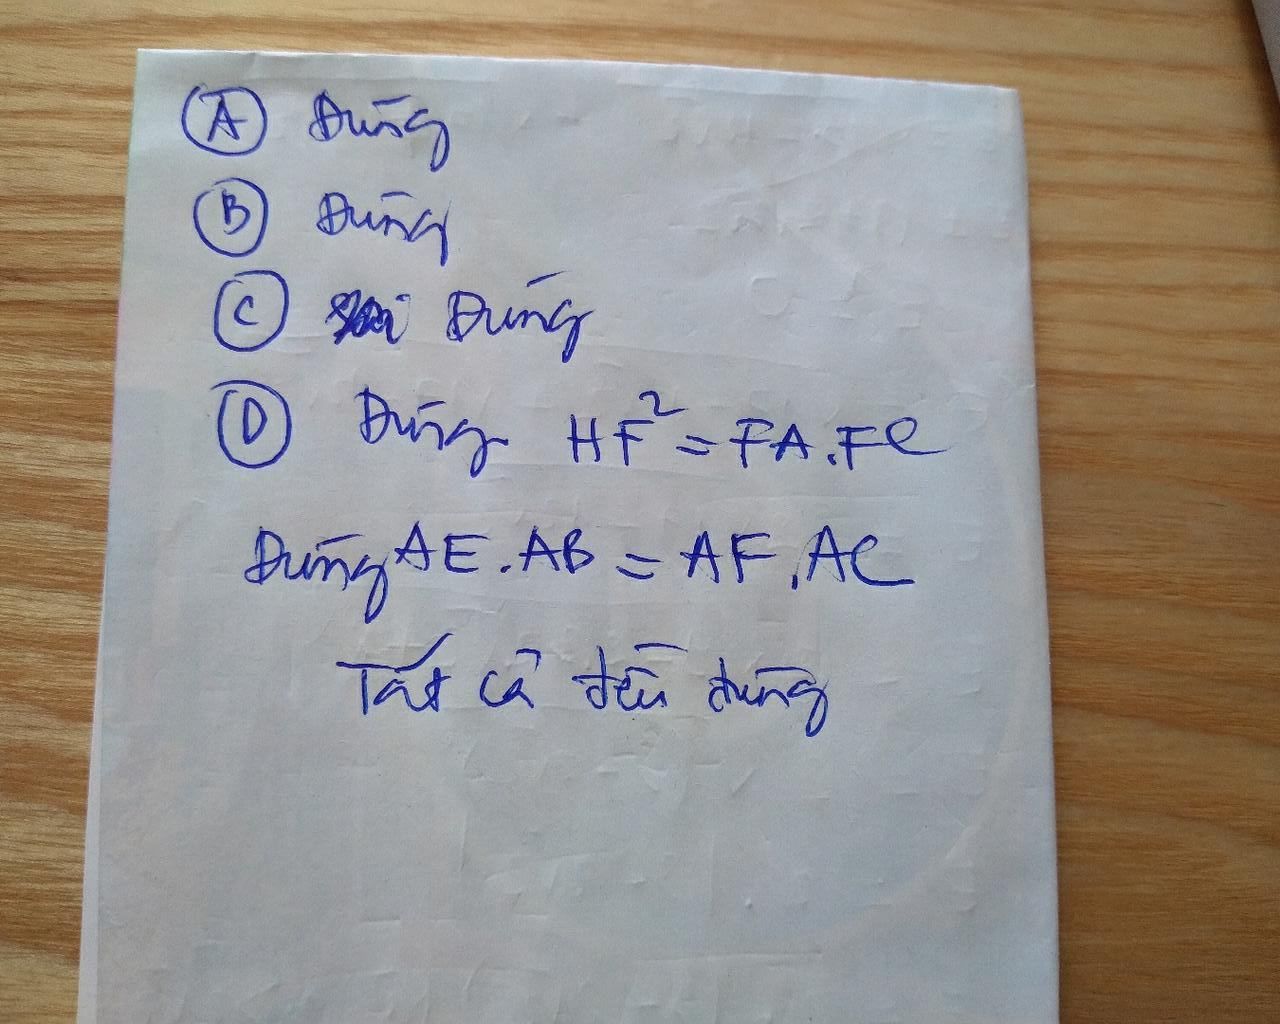 A Đúng
B Đúng
C Đúng
D Đúng HF² = FA.FC
Đúng AE.AB = AF.AC
Tất cả đều đúng